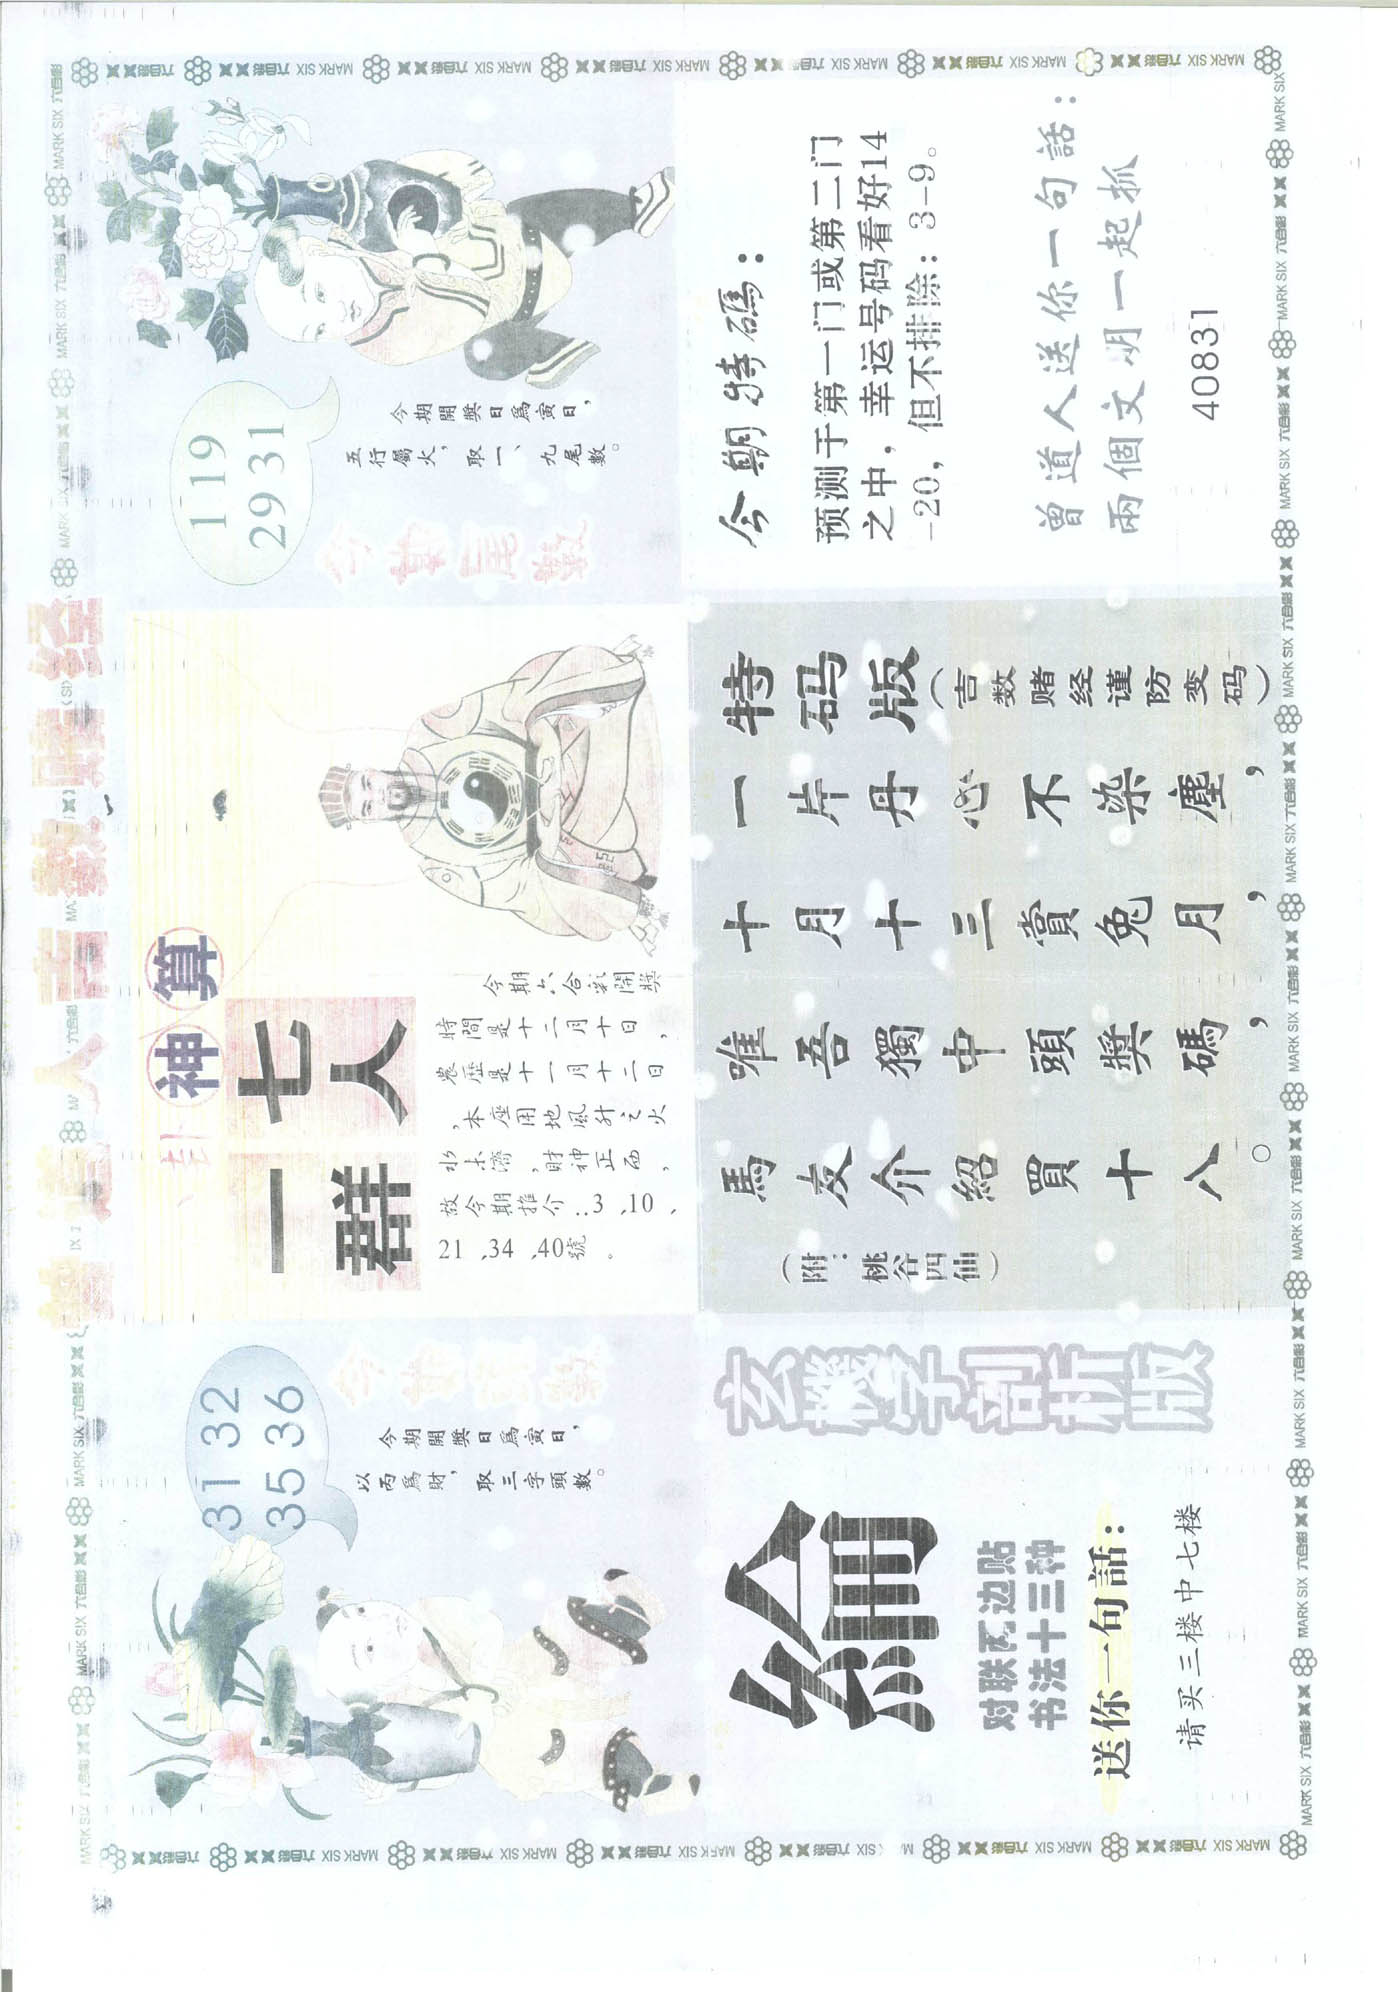 曾道人吉数赌经
31 32
35 36
今期頭數
今期開獎日爲寅日，
以丙爲財，取三字頭數。
卦神算
七人
一群
今期六合彩開獎
時間是十二月十日，
農歷是十一月十二日
，本座用地風升之火
水未濟，財神正西，
故今期推介：3、10、
21、34、40號。
1 19
29 31
今期尾數
今期開獎日爲寅日，
五行屬火，取一、九尾數。
玄機字剖析版
綸
对联两边贴
书法十三种
送你一句話：
请买三楼中七楼
特码版
（吉数赌经谨防变码）
一片丹心不染塵，
十月十三賞兔月，
唯吾獨中頭獎碼，
馬友介紹買十八。
（附：桃谷四仙）
今期特碼：
预测于第一门或第二门
之中，幸运号码看好14
-20，但不排除：3-9。
曾道人送你一句話：
兩個文明一起抓
40831
MARK SIX 六合彩